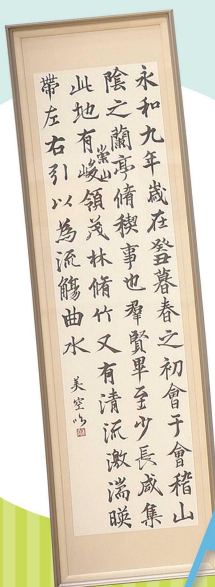 永和九年歳在癸丑暮春之初會于會稽山
陰之蘭亭脩稧事也羣賢畢至少長咸集
此地有崇山峻領茂林脩竹又有清流激湍暎
帶左右引以為流觴曲水
美空